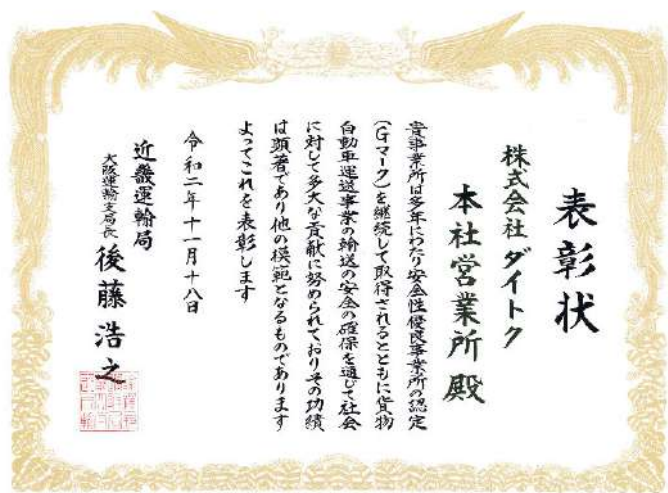 表彰状
株式会社 ダイトク
本社営業所 殿
貴事業所は多年にわたり安全性優良事業所の認定
（Gマーク）を継続して取得されるとともに貨物
自動車運送事業の輸送の安全の確保を通じて社会
に対して多大な貢献に努められておりその功績
は顕著であり他の模範となるものであります
よってこれを表彰します
令和二年十一月十八日
近畿運輸局
大阪運輸支局長 後藤浩之